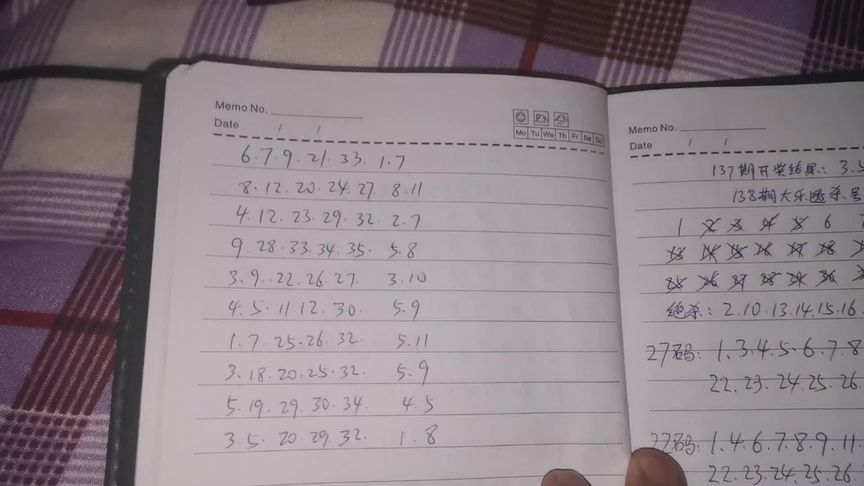 Memo No.
Date / /
Mo Tu We Th Fr Sa Su
6.7.9.21.33. 1.7
8.12.20.24.27. 8.11
4.12.23.29.32. 2.7
9.28.33.34.35. 5.8
3.9.22.26.27. 3.10
4.5.11 12.30. 5.9
1.7.25.26.32. 5.11
3.18.20.25.32. 5.9
5.19.29.30.34. 4.5
3.5.20.29.32. 1.8
Memo No.
Date / /
137期开奖结果: 3.5
138期大乐透杀号
1 2 3 4 5 6
13 14 15 16 17 18
25 26 27 28 29 30
绝杀: 2.10.13.14.15.16.
27码: 1.3.4.5.6.7.8
22.23.24.25.26.
22码: 1.4.6.7.8.9.11.
22.23.24.25.26.